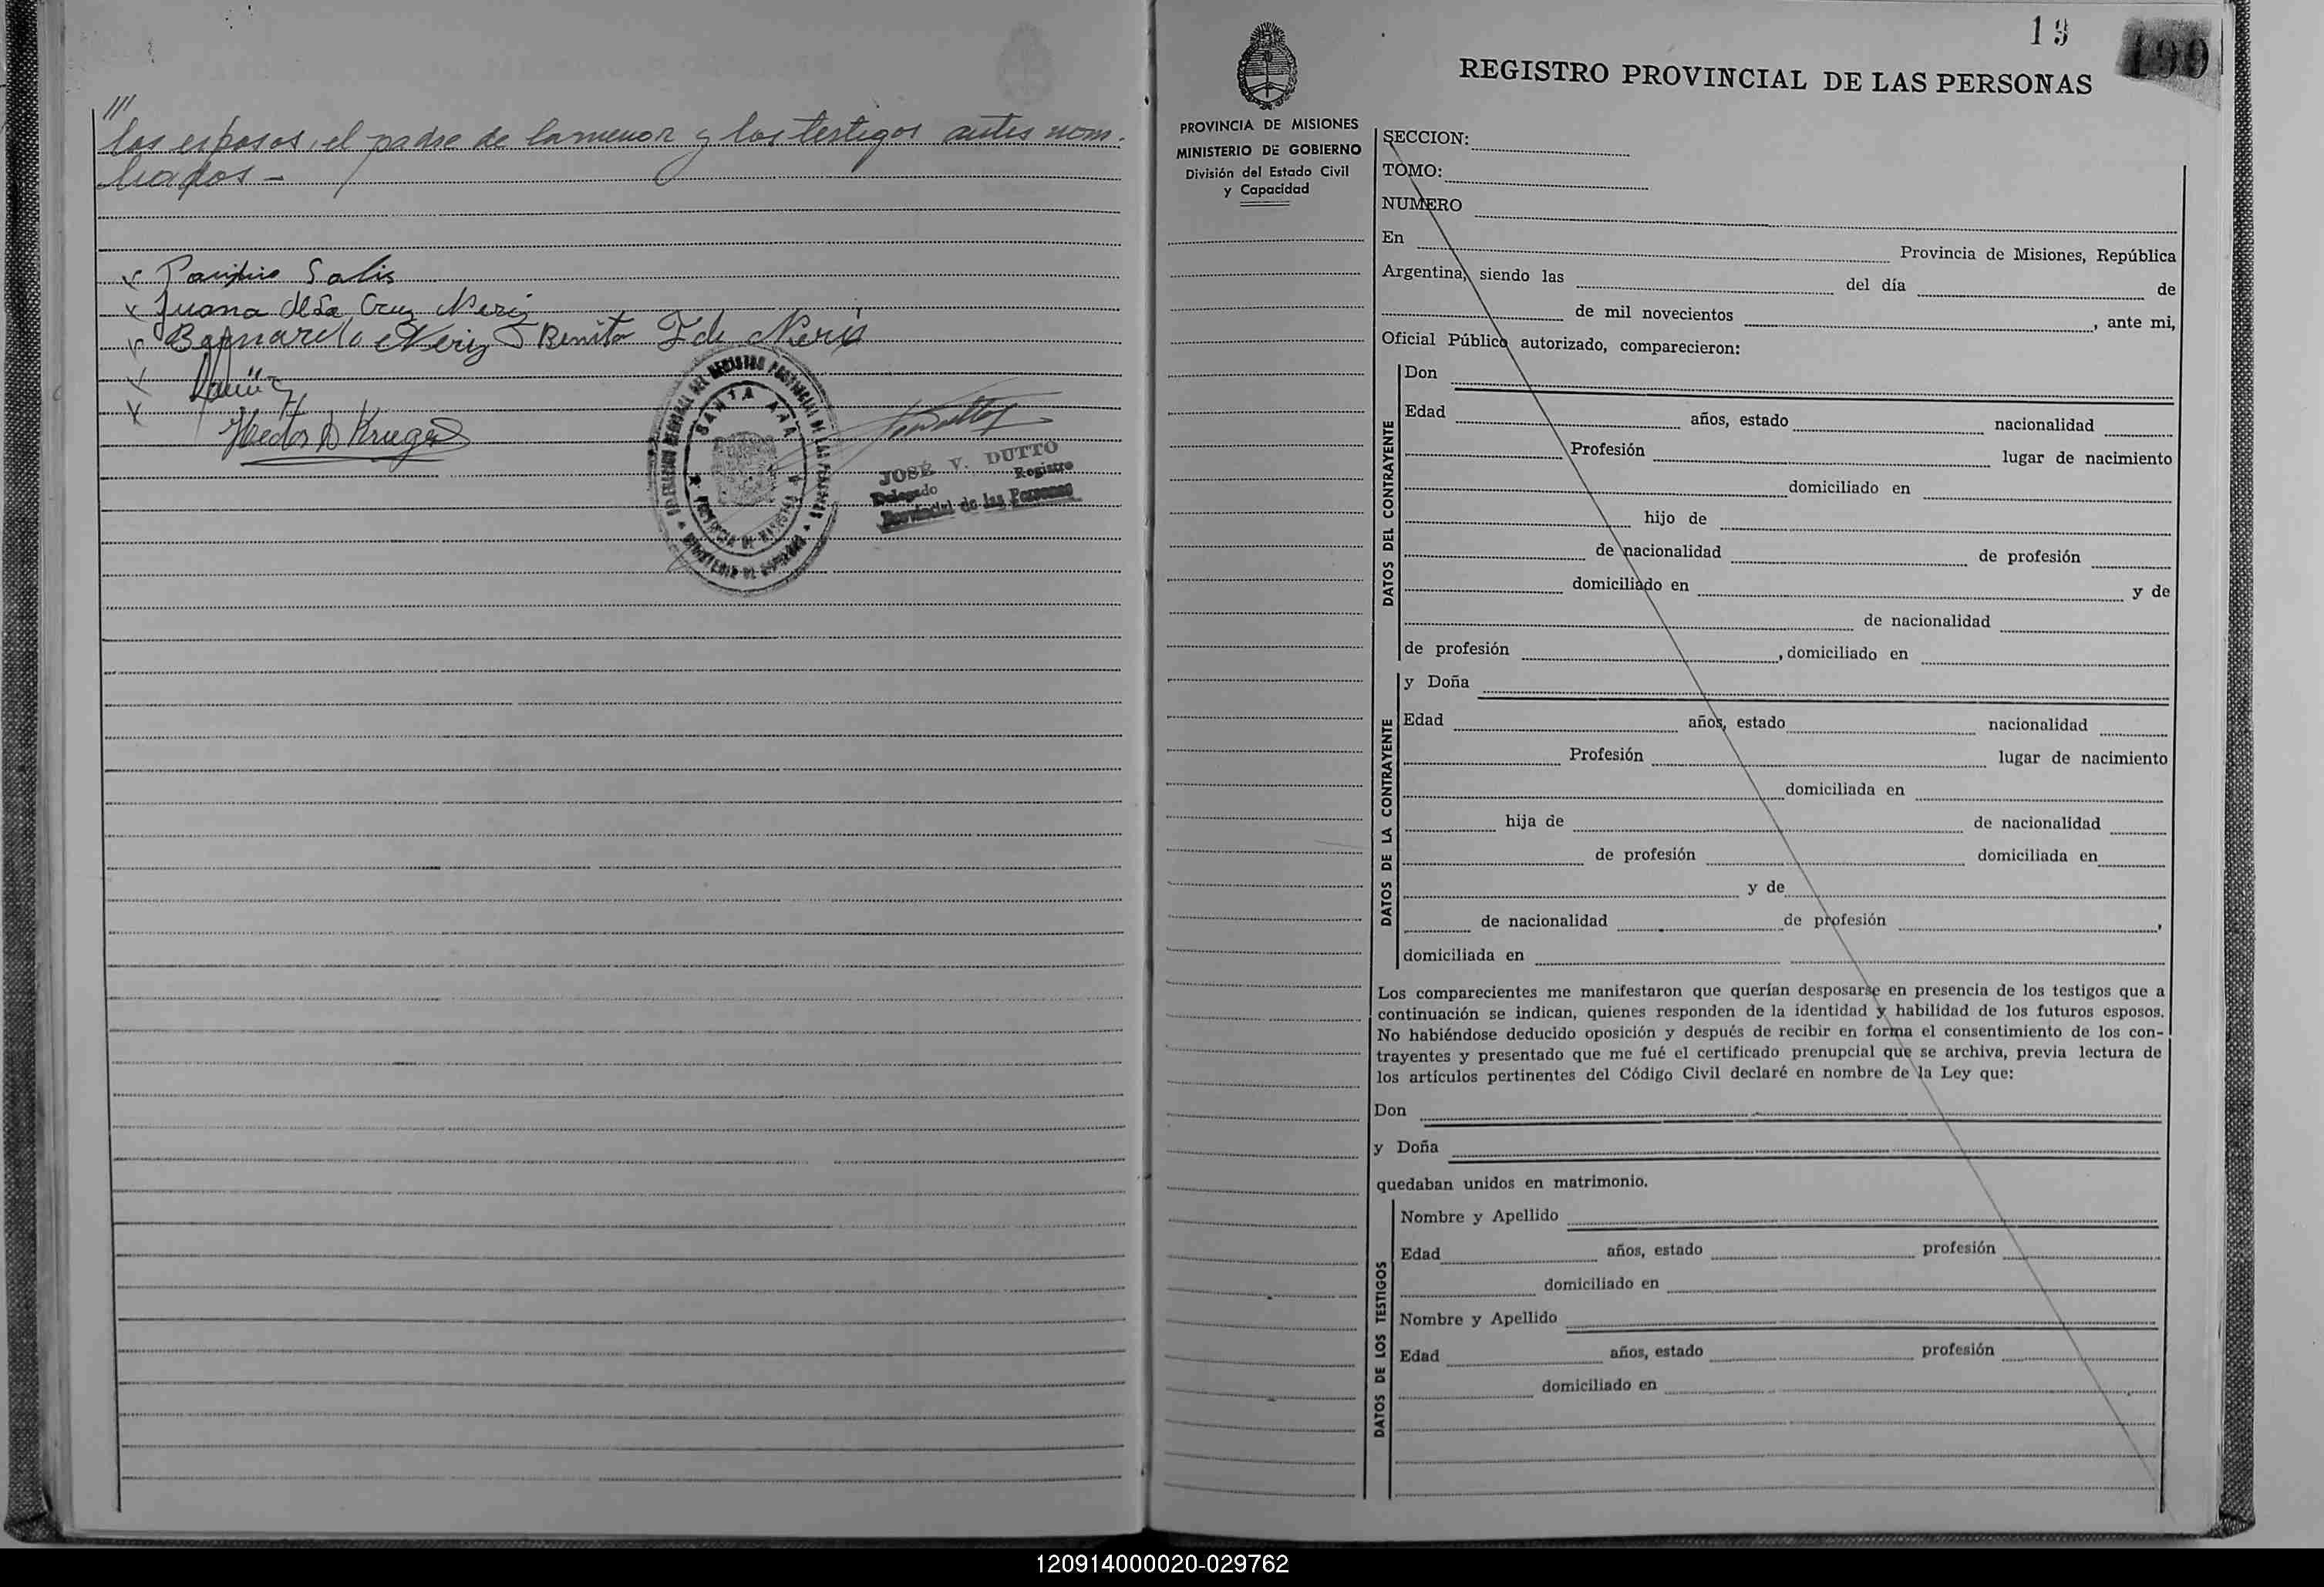 ///
los esposos, el padre de la menor y los testigos antes nom-
brados -
Solis
Juana de la Cruz Neris
Bernardo Neris Benita F de Neris
Hector D Kruger
SANTA ANA
PROVINCIA DE MISIONES
MINISTERIO DE GOBIERNO
JOSÉ V. DUTTO
Delegado Registro
Provincial de las Personas
19
190
REGISTRO PROVINCIAL DE LAS PERSONAS
PROVINCIA DE MISIONES
MINISTERIO DE GOBIERNO
División del Estado Civil
y Capacidad
SECCION:
TOMO:
NUMERO
En Provincia de Misiones, República
Argentina, siendo las del día de
de mil novecientos , ante mi,
Oficial Público autorizado, comparecieron:
DATOS DEL CONTRAYENTE
Don
Edad años, estado nacionalidad
Profesión lugar de nacimiento
domiciliado en
hijo de
de nacionalidad de profesión
domiciliado en y de
de nacionalidad
de profesión , domiciliado en
DATOS DE LA CONTRAYENTE
y Doña
Edad años, estado nacionalidad
Profesión lugar de nacimiento
domiciliada en
hija de de nacionalidad
de profesión domiciliada en
y de
de nacionalidad de profesión ,
domiciliada en
Los comparecientes me manifestaron que querían desposarse en presencia de los testigos que a
continuación se indican, quienes responden de la identidad y habilidad de los futuros esposos.
No habiéndose deducido oposición y después de recibir en forma el consentimiento de los con-
trayentes y presentado que me fué el certificado prenupcial que se archiva, previa lectura de
los artículos pertinentes del Código Civil declaré en nombre de la Ley que:
Don
y Doña
quedaban unidos en matrimonio.
DATOS DE LOS TESTIGOS
Nombre y Apellido
Edad años, estado profesión
domiciliado en
Nombre y Apellido
Edad años, estado profesión
domiciliado en
120914000020-029762